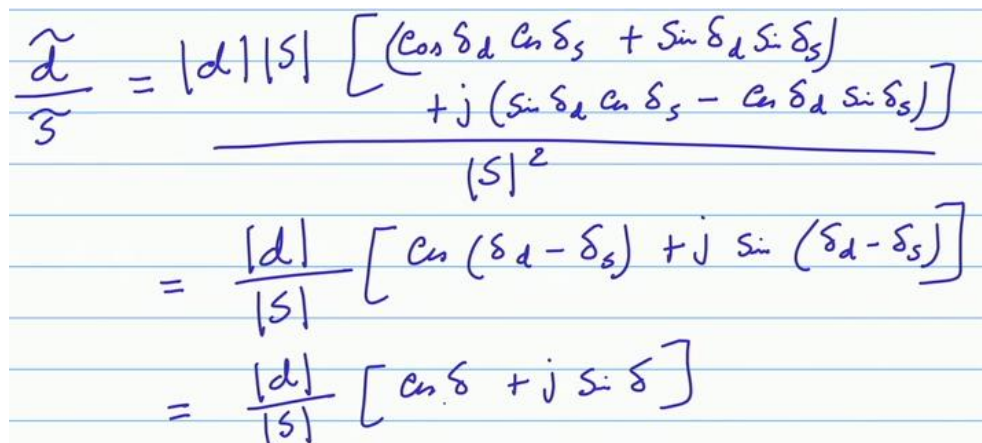 d̃/s̃ = |d||s| [(cos δ_d cos δ_s + sin δ_d sin δ_s)
+ j (sin δ_d cos δ_s − cos δ_d sin δ_s)]
|s|²
= |d|/|s| [cos (δ_d − δ_s) + j sin (δ_d − δ_s)]
= |d|/|s| [cos δ + j sin δ]